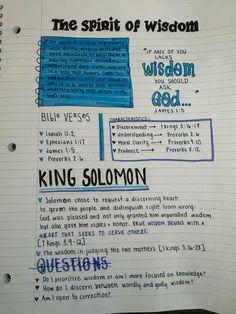 The Spirit of Wisdom
"IF ANY OF YOU
LACKS
wisdom
YOU SHOULD
ASK
GOD...
JAMES 1:5
BIBLE VERSES
♥ Isaiah 11:2
♥ Ephesians 1:17
♥ James 1:5
♥ Proverbs 2:6
CHARACTERISTICS:
♥ Discernment → 1 Kings 3:16-28
♥ Understanding → Proverbs 2:6
♥ Moral Clarity → Proverbs 9:10
♥ Prudence → Proverbs 8:12
KING SOLOMON
♥ Solomon chose to request a discerning heart
to govern the people and distinguish right from wrong.
God was pleased and not only granted him unparalleled wisdom
but also gave him riches + honor. TRUE WISDOM BEGINS WITH A
HEART THAT SEEKS TO SERVE OTHERS.
[1 Kings 3:9-12]
♥ The wisdom in judging the two mothers [1 Kings 3:16-28]
QUESTIONS
♥ Do I prioritize wisdom or am I more focused on knowledge?
♥ How do I discern between worldly and godly wisdom?
♥ Am I open to correction?